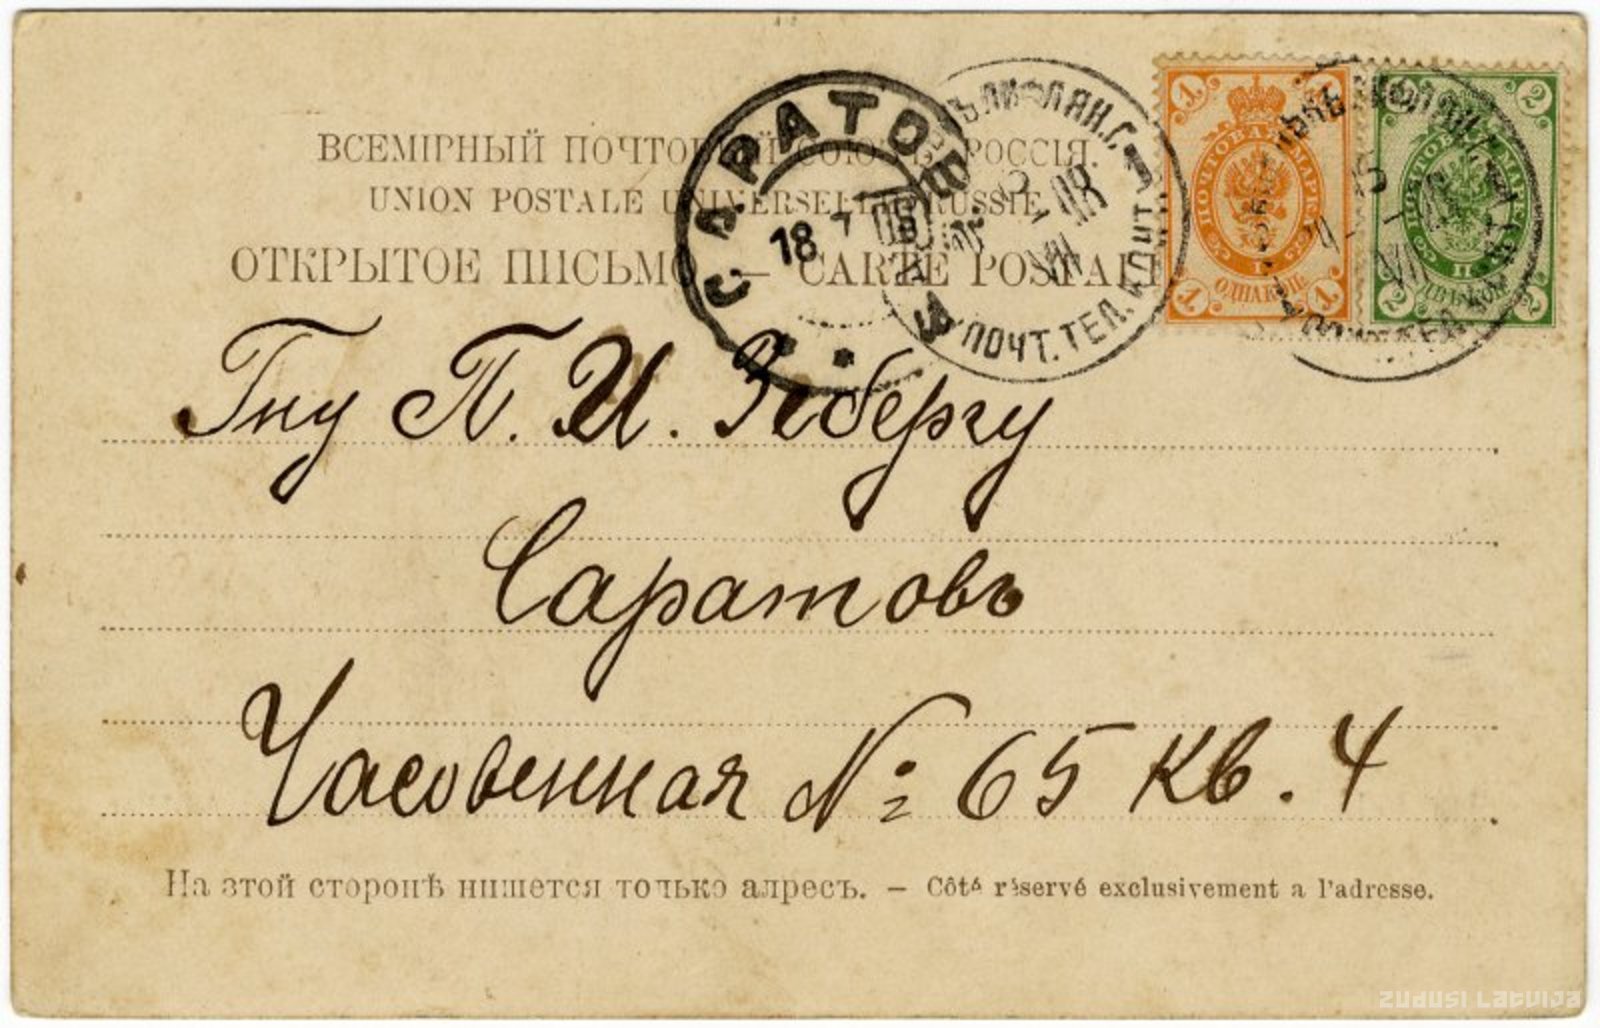 ВСЕМІРНЫЙ ПОЧТОВЫЙ СОЮЗЪ. РОССІЯ.
UNION POSTALE UNIVERSELLE. RUSSIE
ОТКРЫТОЕ ПИСЬМО — CARTE POSTALE
САРАТОВ
18 7 05
ЛИФЛЯН. Г.
ПОЧТ. ТЕЛ.
VII
1 1
ПОЧТОВАЯ МАРКА
1 ОДНАКОП. 1
2
ПОЧТОВАЯ МАРКА
2 2
Гну П. И. Зебергу
Саратовъ
Часовенная № 65 кв. 4
На этой сторонѣ пишется только адресъ. — Côté réservé exclusivement a l'adresse.
ZUDUSI LATVIJA